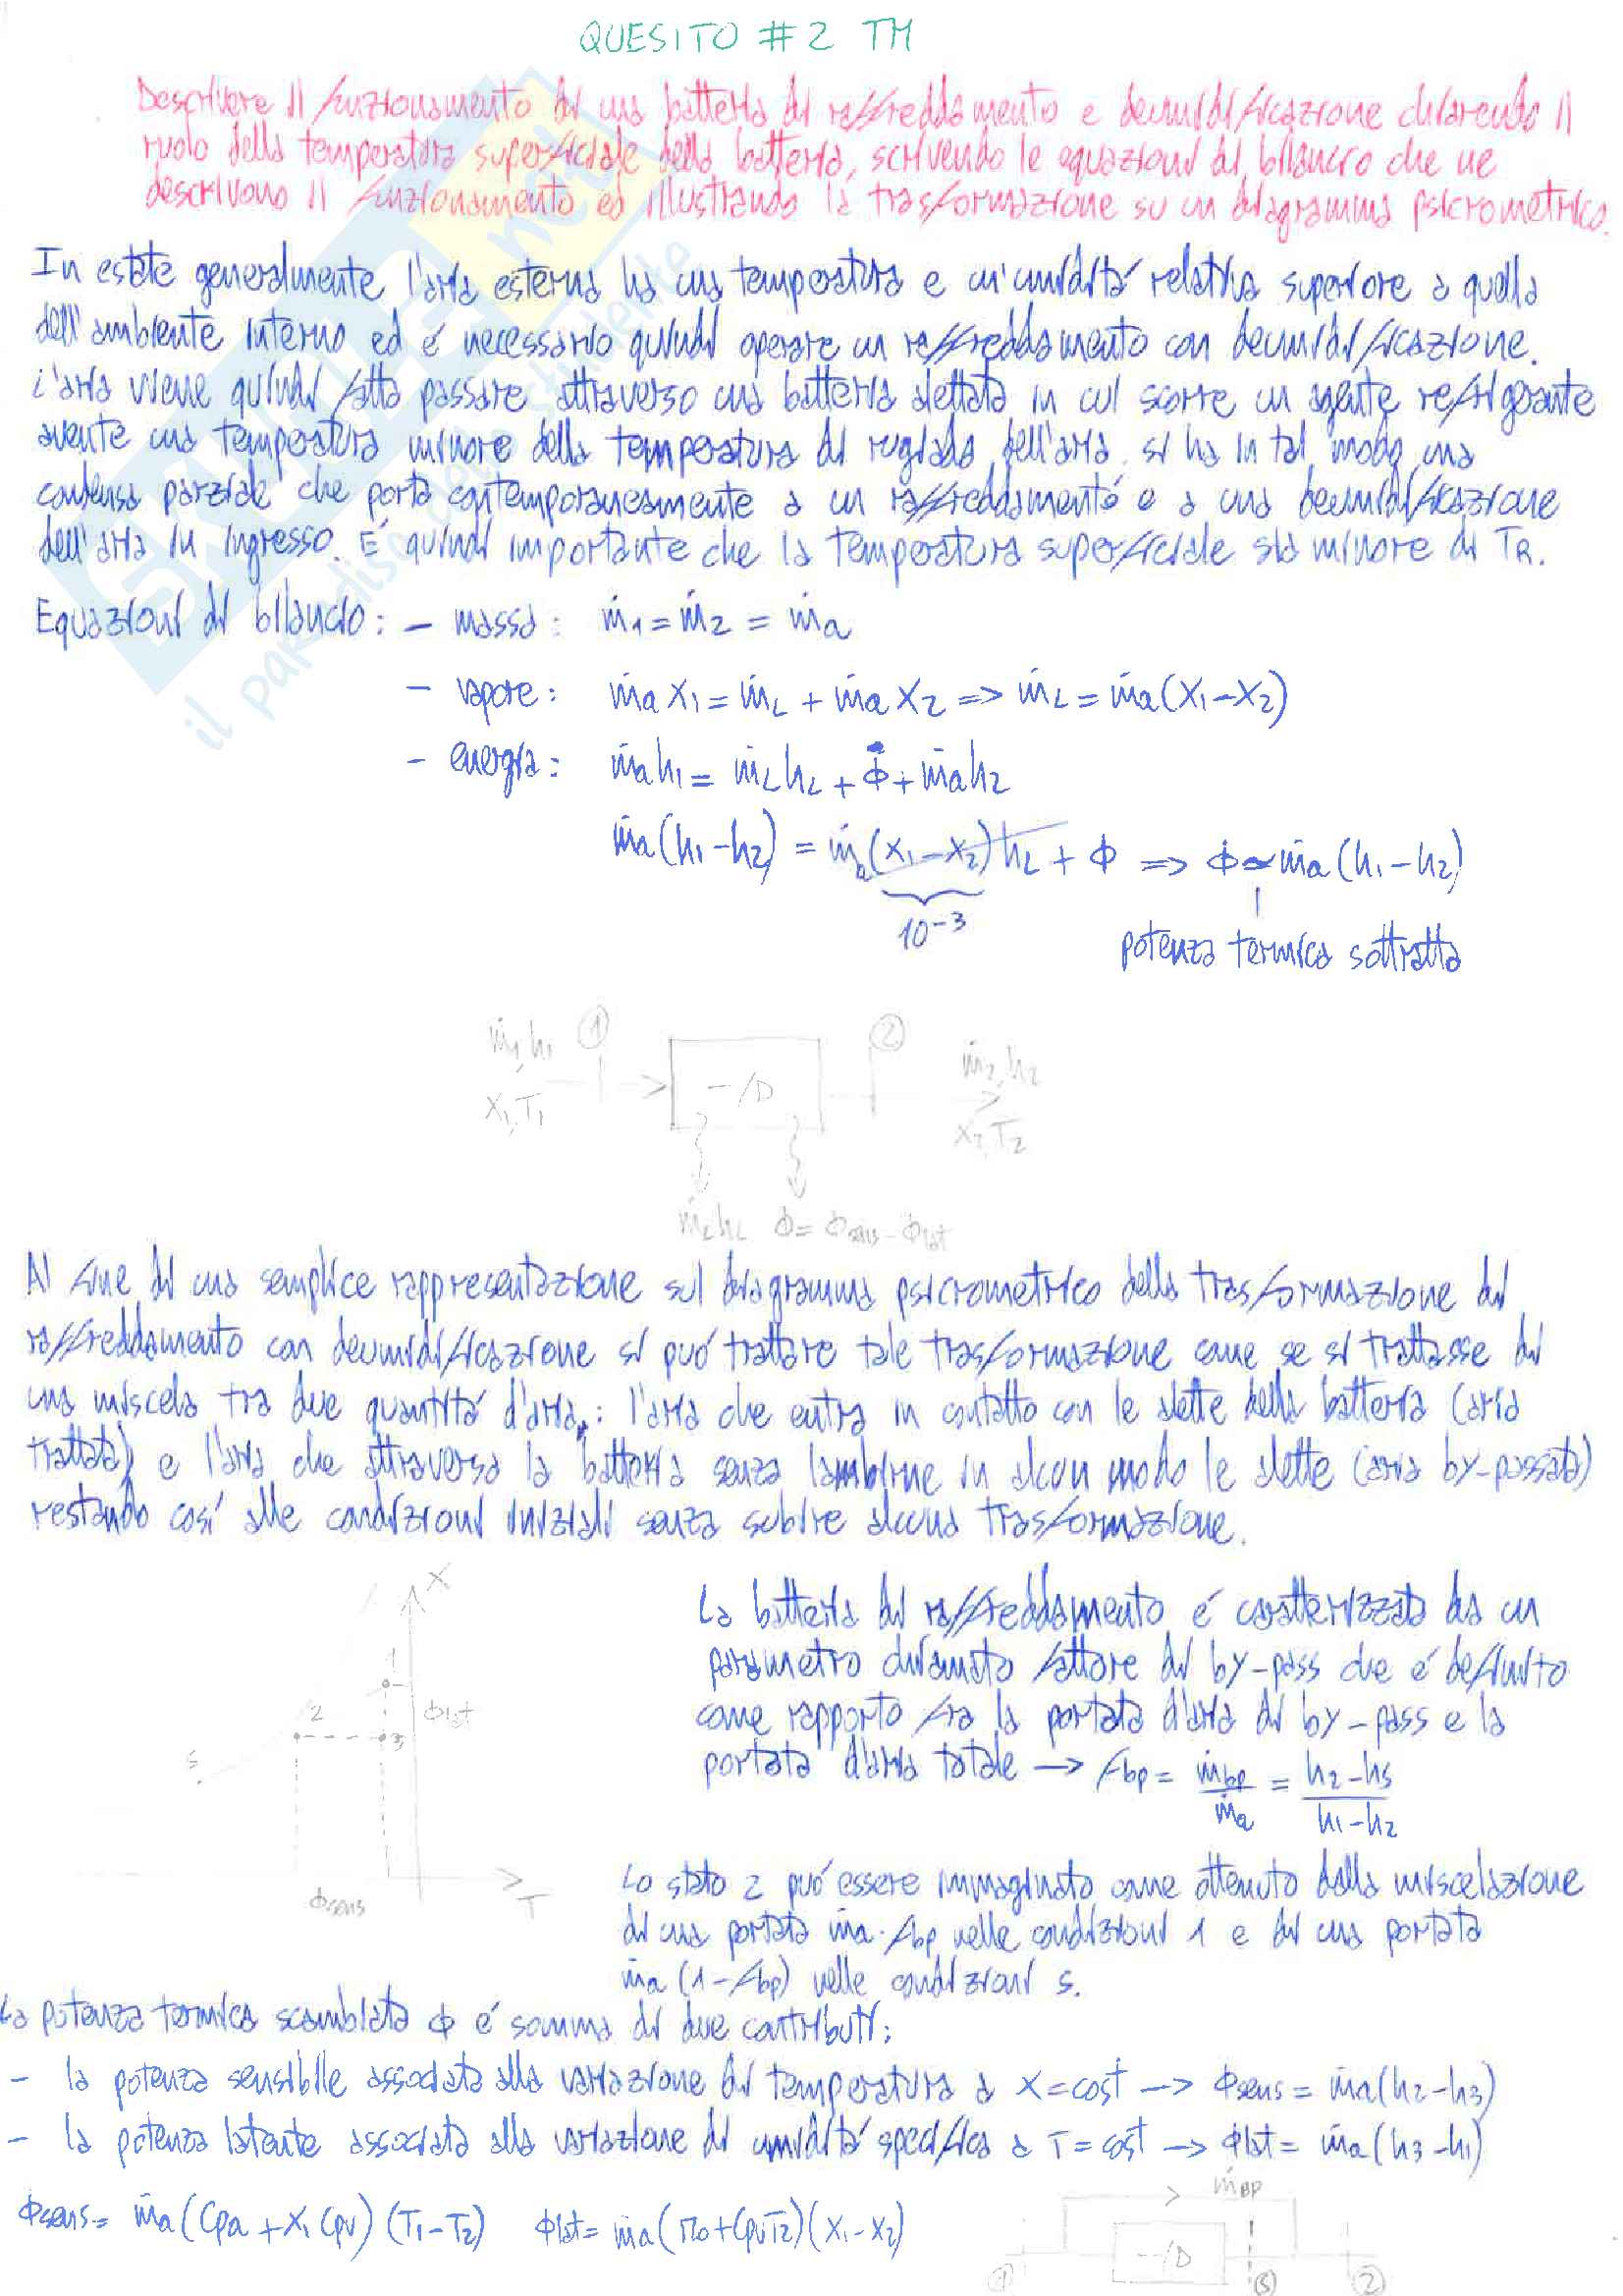 QUESITO #2 TM
Descrivere il funzionamento di una batteria di raffreddamento e deumidificazione chiarendo il
ruolo della temperatura superficiale della batteria, scrivendo le equazioni di bilancio che ne
descrivono il funzionamento ed illustrando la trasformazione su un diagramma psicrometrico.
In estate generalmente l'aria esterna ha una temperatura e un'umidità relativa superiore a quella
dell'ambiente interno ed é necessario quindi operare un raffreddamento con deumidificazione.
L'aria viene quindi fatta passare attraverso una batteria alettata in cui scorre un agente refrigerante
avente una temperatura minore della temperatura di rugiada dell'aria. si ha in tal modo una
condensa parziale che porta contemporaneamente a un raffreddamento e a una deumidificazione
dell'aria in ingresso. E' quindi importante che la temperatura superficiale sia minore di TR.
Equazioni di bilancio: - massa: ṁ1 = ṁ2 = ṁa
- vapore: ṁa X1 = ṁL + ṁa X2 => ṁL = ṁa (X1 - X2)
- energia: ṁa h1 = ṁL hL + Φ + ṁa h2
ṁa (h1 - h2) = ṁa (X1 - X2) hL + Φ => Φ ≃ ṁa (h1 - h2)
10^-3
potenza termica sottratta
ṁ1, h1 1 2 ṁ2, h2
X1, T1 -/D X2, T2
ṁL hL Φ = Φsens - Φlat
Al fine di una semplice rappresentazione sul diagramma psicrometrico della trasformazione di
raffreddamento con deumidificazione si puó trattare tale trasformazione come se si trattasse di
una miscela tra due quantitá d'aria: l'aria che entra in contatto con le alette della batteria (aria
trattata) e l'aria che attraversa la batteria senza lambirne in alcun modo le alette (aria by-passata)
restando cosí alle condizioni iniziali senza subire alcuna trasformazione.
La batteria di raffreddamento é caratterizzata da un
parametro chiamato fattore di by-pass che é definito
come rapporto fra la portata d'aria di by-pass e la
portata d'aria totale -> fbp = ṁbp / ṁa = h2 - hs / h1 - h2
X
1
Φlat
2
3
s
Φsens
T
Lo stato 2 puó essere immaginato come ottenuto dalla miscelazione
di una portata ṁa · fbp nelle condizioni 1 e di una portata
ṁa (1 - fbp) nelle condizioni s.
La potenza termica scambiata Φ é somma di due contributi:
- la potenza sensibile associata alla variazione di temperatura a X = cost -> Φsens = ṁa (h2 - h3)
- la potenza latente associata alla variazione di umiditá specifica a T = cost -> Φlat = ṁa (h3 - h1)
Φsens = ṁa (Cpa + X1 Cpv) (T1 - T2) Φlat = ṁa (r0 + Cpv T2) (X1 - X2)
ṁBP
-/D
1 S 2
SKUOLA.net
il paradiso dello studente